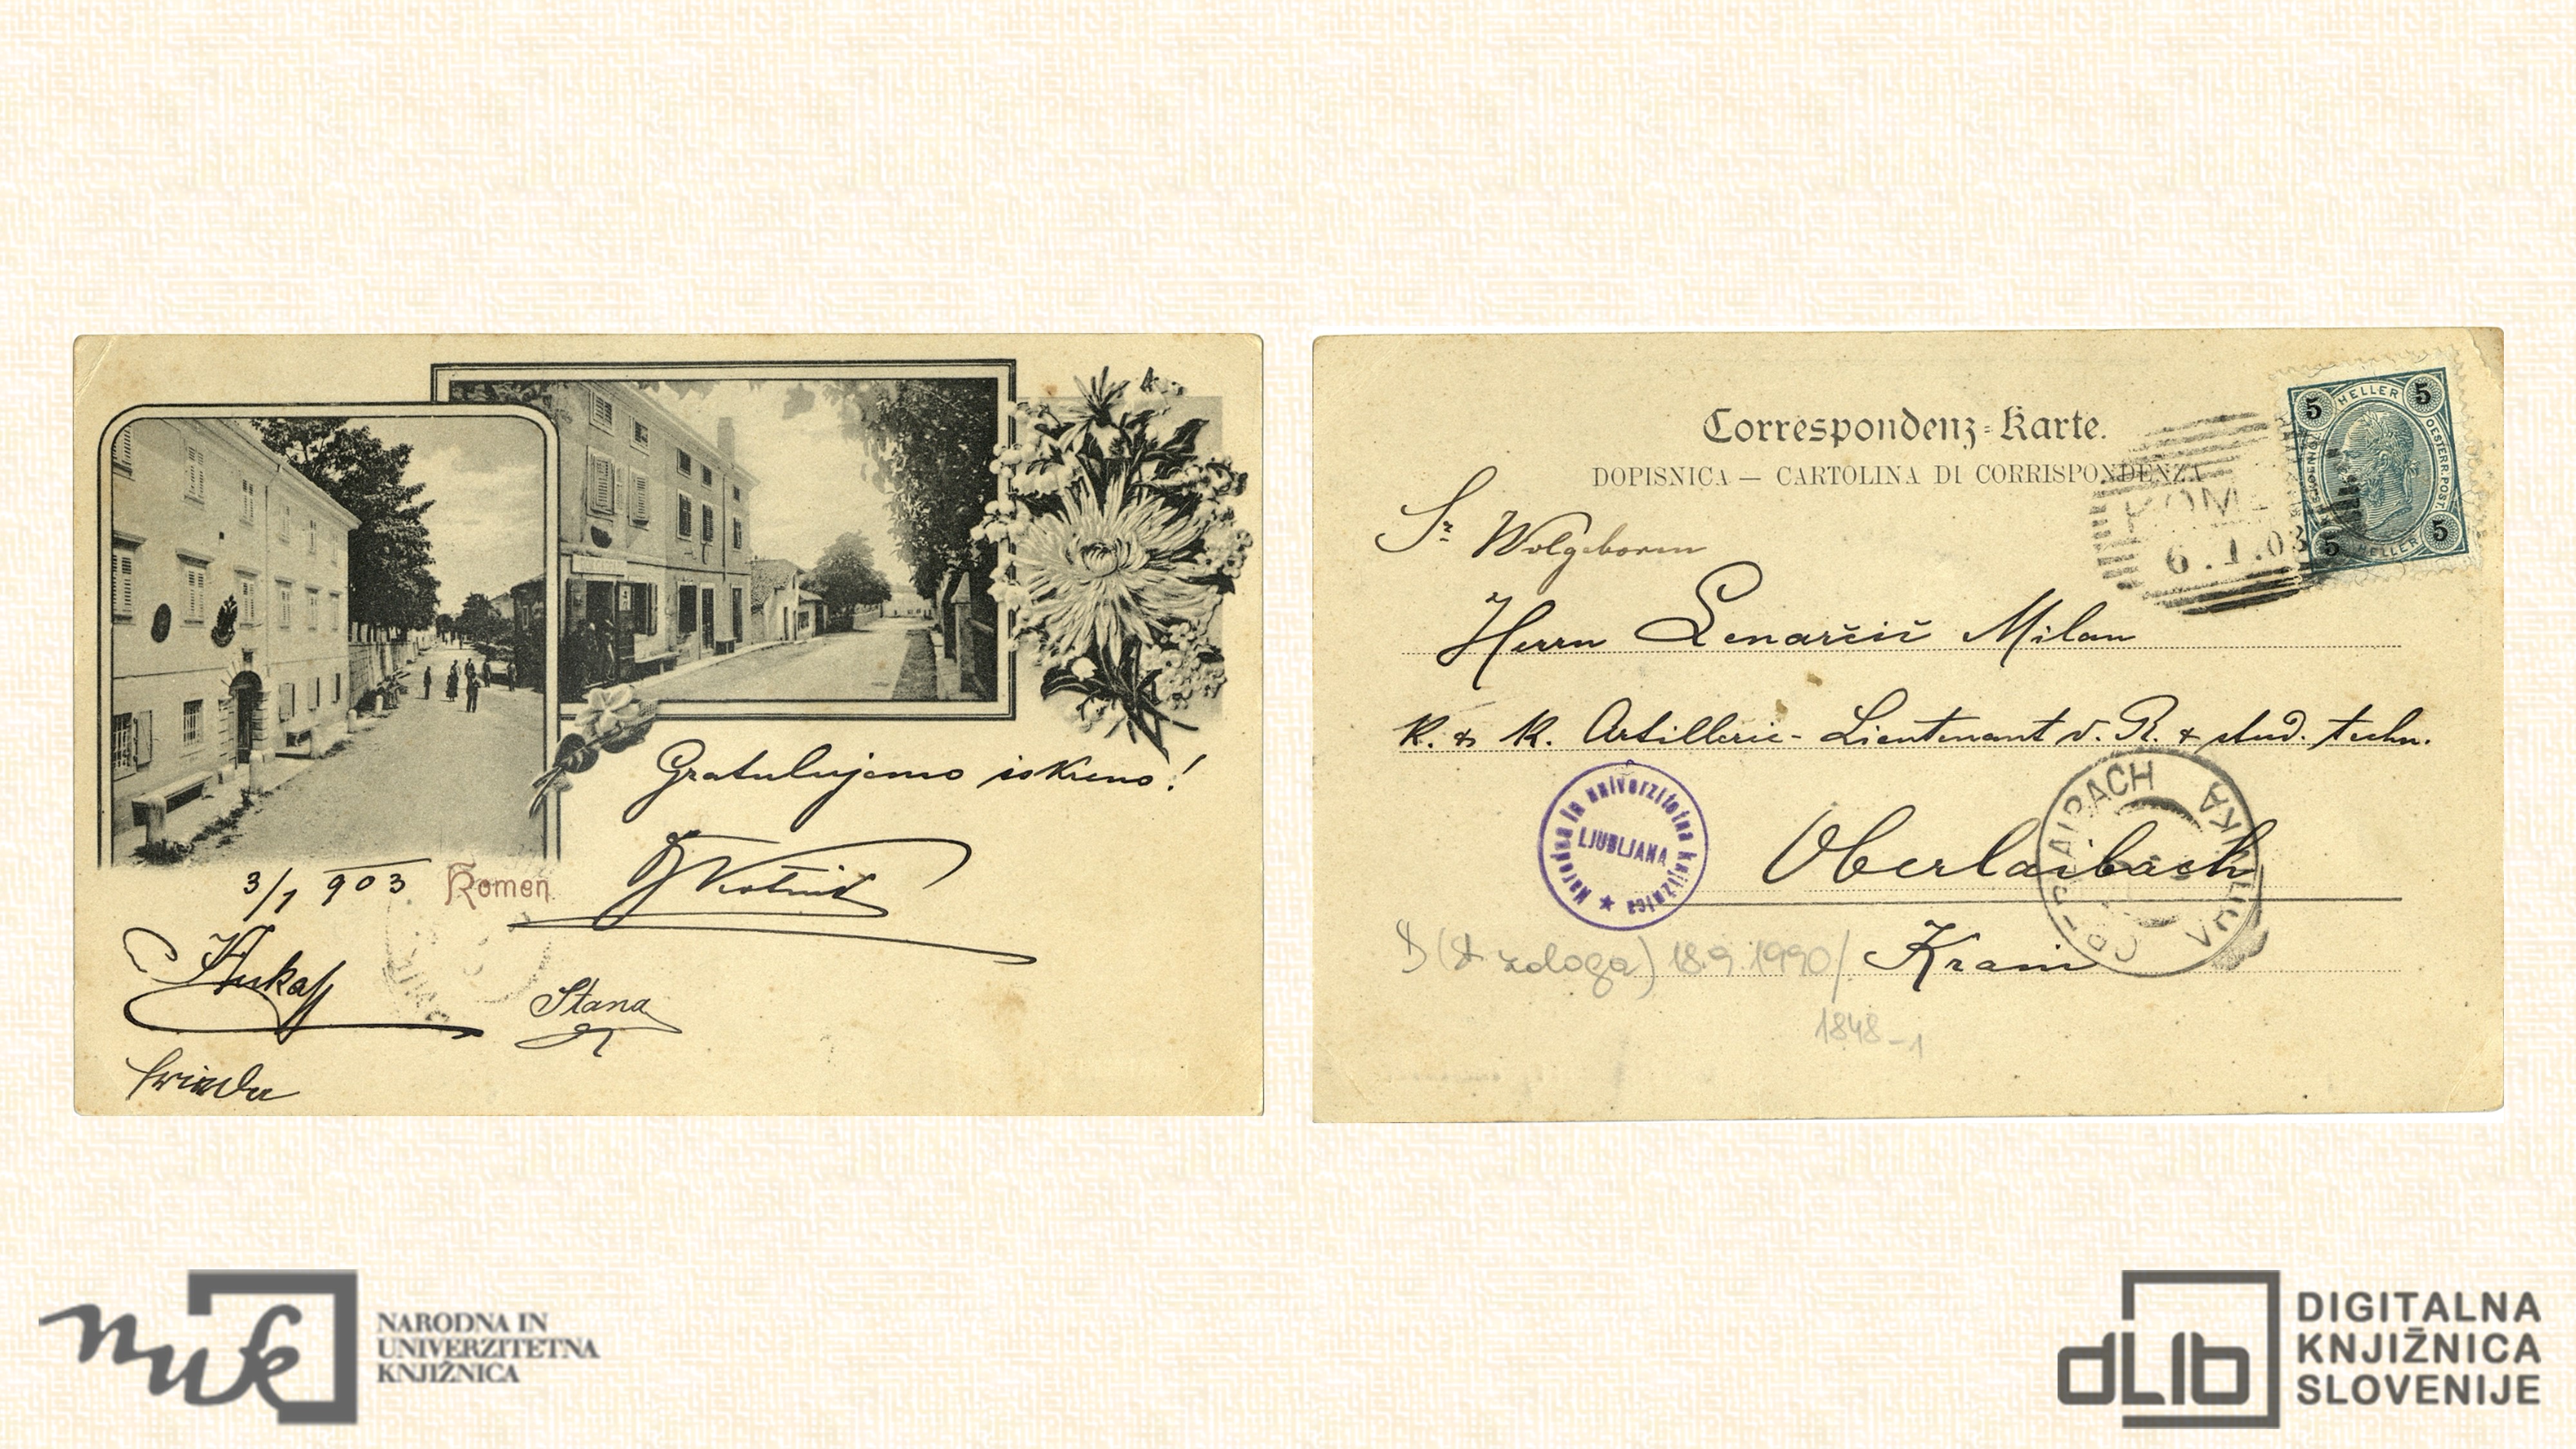 Gratulujemo iskreno!
3/1 903
Komen
Stana
Correspondenz-Karte.
DOPISNICA — CARTOLINA DI CORRISPONDENZA
HELLER
5 5 5 5
KOM
6.1.03
Sr Wolgeboren
Herrn Lenarčič Milan
K. & K. Artillerie-Lieutenant v. R. & stud. techn.
Narodna in univerzitetna knjižnica
LJUBLJANA
Oberlaibach
VRHNIKA
D (iz zaloga) 18.9.1990/
Krain
1848-1
nuk
NARODNA IN
UNIVERZITETNA
KNJIŽNICA
dLib
DIGITALNA
KNJIŽNICA
SLOVENIJE